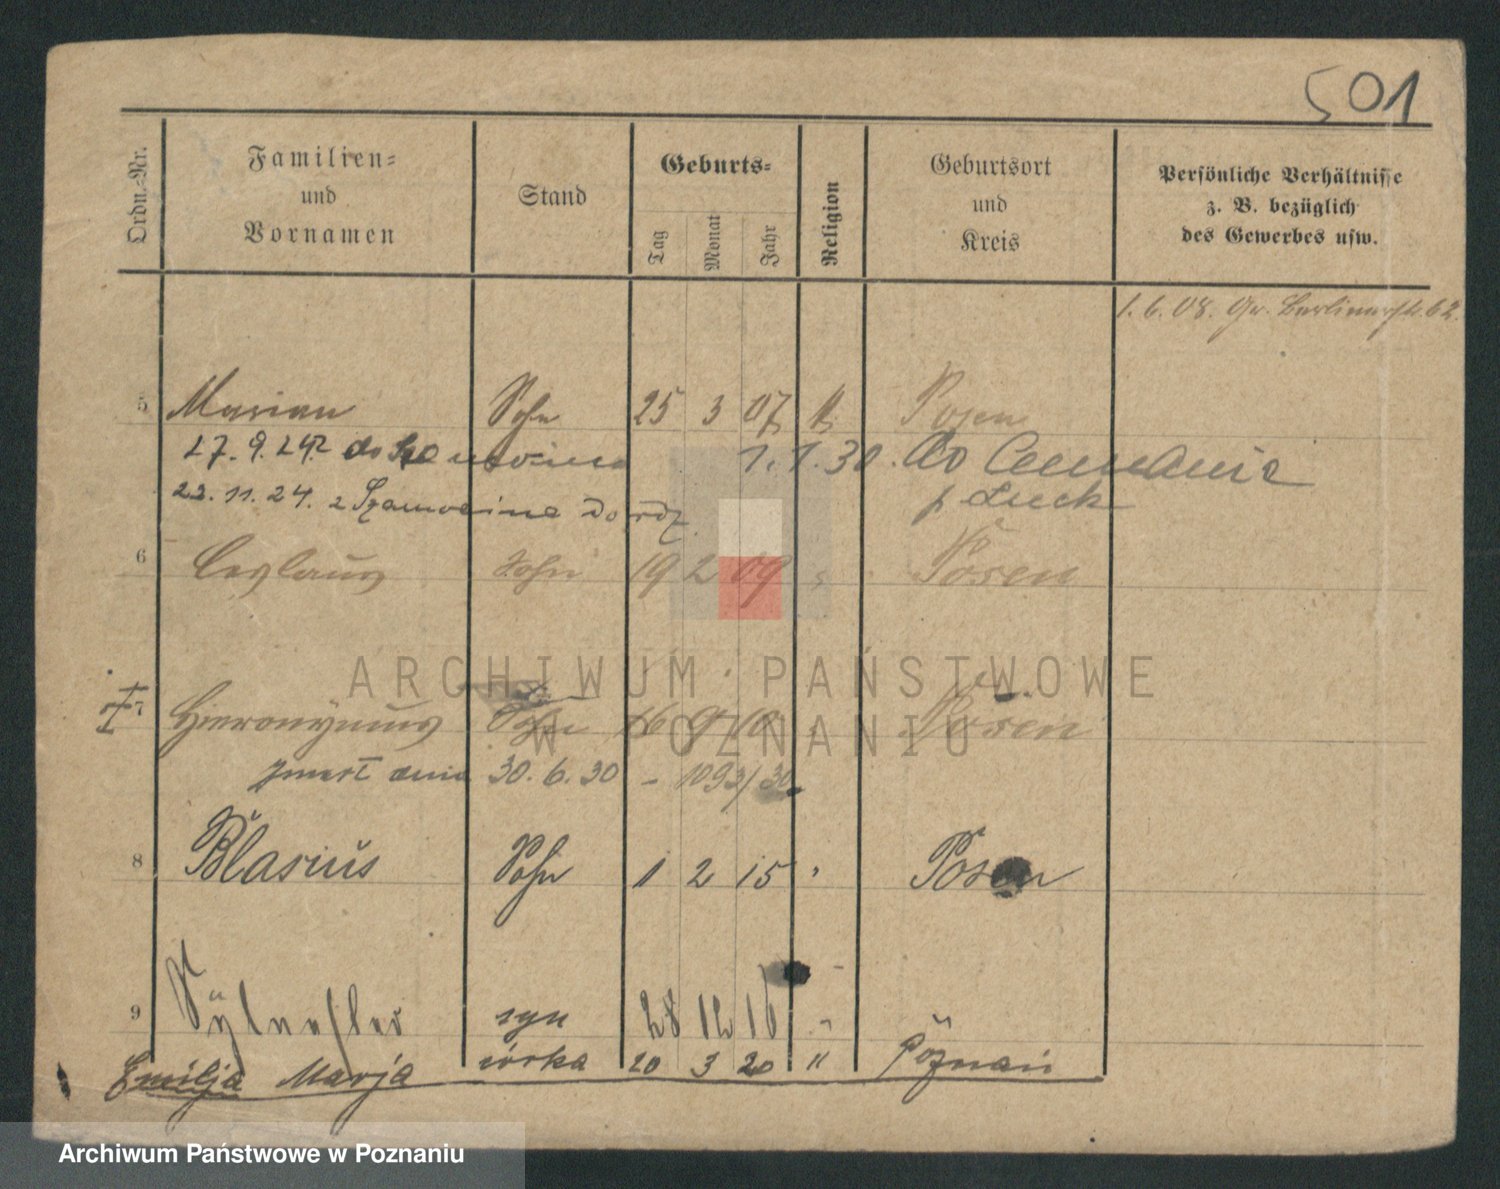 501
Ordn.-Nr.
Familien-
und
Vornamen
Stand
Geburts-
Tag
Monat
Jahr
Religion
Geburtsort
und
Kreis
Persönliche Verhältnisse
z. B. bezüglich
des Gewerbes usw.
1. 6. 08. Gr. Berlinerstr. 62.
5 Marian Sohn 25 3 07 k. Posen
17. 9. 24 do 1. 1. 30. do
22. 11. 24. z Szamocina do
6 Ceslaus Sohn 19 2 09 Posen
7 Hieronymus Sohn 16 9 10 Posen
zmarł dnia 30. 6. 30 - 1093/30
8 Blasius Sohn 1 2 15 " Posen
9 Sylvester syn 28 12 16 "
Emilja Marja córka 20 3 20 " Poznań
ARCHIWUM PAŃSTWOWE
W POZNANIU
Archiwum Państwowe w Poznaniu